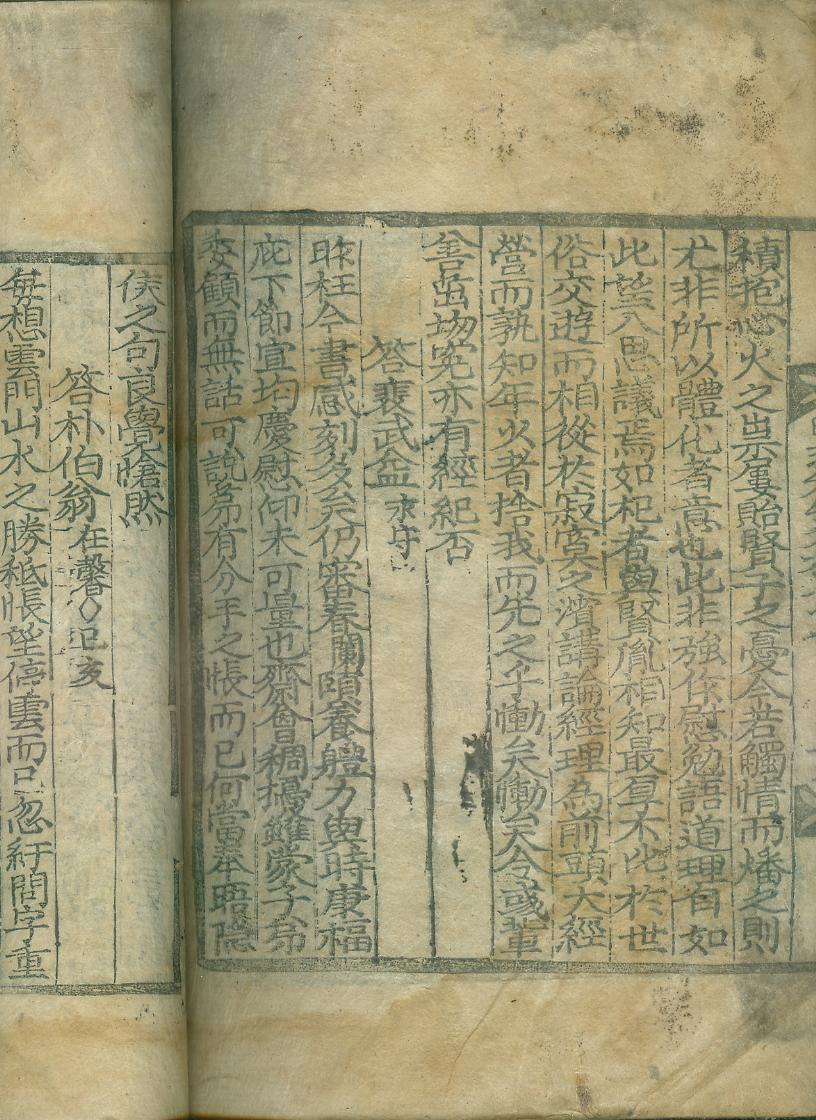 積抱心火之祟屢貽賢子之憂今若觸情而燔之則
尤非所以體化者意也此非強作慰勉語道理自如
此望入思議焉如杞者與賢胤相知最厚不比於世
俗交遊而相從於寂寞之濱講論經理為前頭大經
營而孰知年少者捨我而先之乎慟矣慟矣令彧輩
善啚坳寃亦有經紀否
答裵武益
昨枉今書感刻多矣仍審春闌頤養軆力與時康福
庇下節宣均慶慰仰未可量也齋會稠擾雖蒙子弟
委顧而無話可說第有分手之悵而已何當奉晤隐
侯之句良覺愴然
答朴伯翁在馨○己亥
每想雲門山水之勝秪悵望停雲而已忽紆問字重